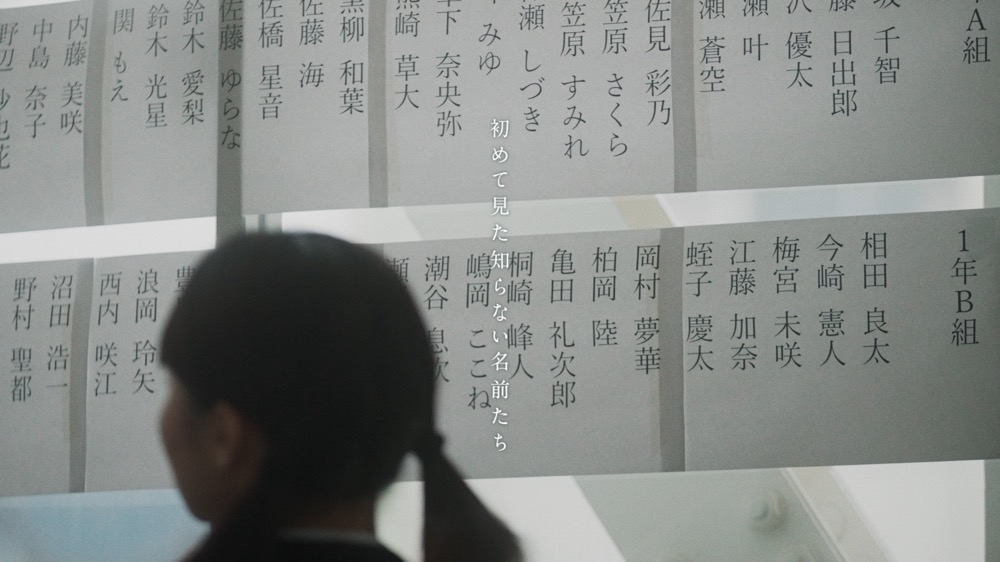 年A組
千智
藤 日出郎
沢 優太
瀬 叶
瀬 蒼空
佐見 彩乃
笠原 さくら
笠原 すみれ
瀬 しづき
みゆ
下 奈央弥
熊崎 草大
黒柳 和葉
佐藤 海
佐橋 星音
佐藤 ゆらな
鈴木 愛梨
鈴木 光星
関 もえ
内藤 美咲
中島 奈子
初めて見た知らない名前たち
1年B組
相田 良太
今崎 憲人
梅宮 未咲
江藤 加奈
蛭子 慶太
岡村 夢華
柏岡 陸
亀田 礼次郎
桐崎 峰人
嶋岡 ここね
潮谷
瀬
豊
浪岡 玲矢
西内 咲江
沼田 浩一
野村 聖都